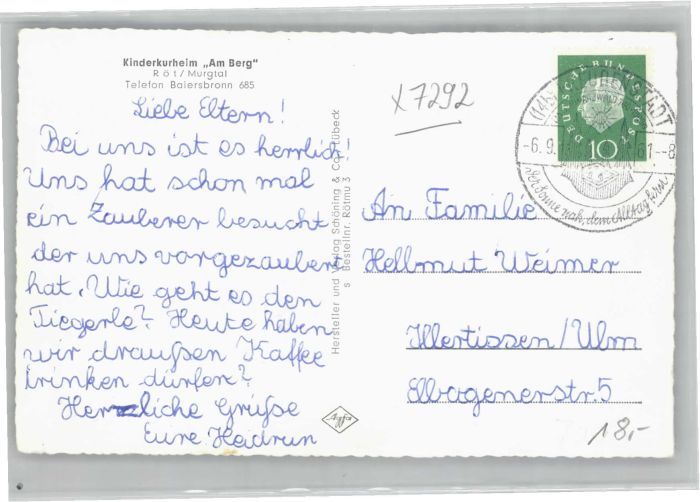 Kinderkurheim „Am Berg"
Röt/Murgtal
Telefon Baiersbronn 685
Liebe Eltern!
Bei uns ist es herrlich-
Uns hat schon mal
ein Zauberer besucht
der uns vorgezaubert
hat. Wie geht es den
Tiegerle? Heute haben
wir draußen Kaffee
trinken dürfen?
Herzliche Grüße
Eure Heidrun
Hersteller und Verlag Schöning & Co Lübeck
s Bestellnr. Rötmu 3
Agfa
x7292
DEUTSCHE BUNDESPOST
10
-6.9. 61.-8
der Sonne nah, dem Alltag fern
An Familie
Hellmut Weimer
Illertissen/Ulm
Elbogenerstr. 5
18,-